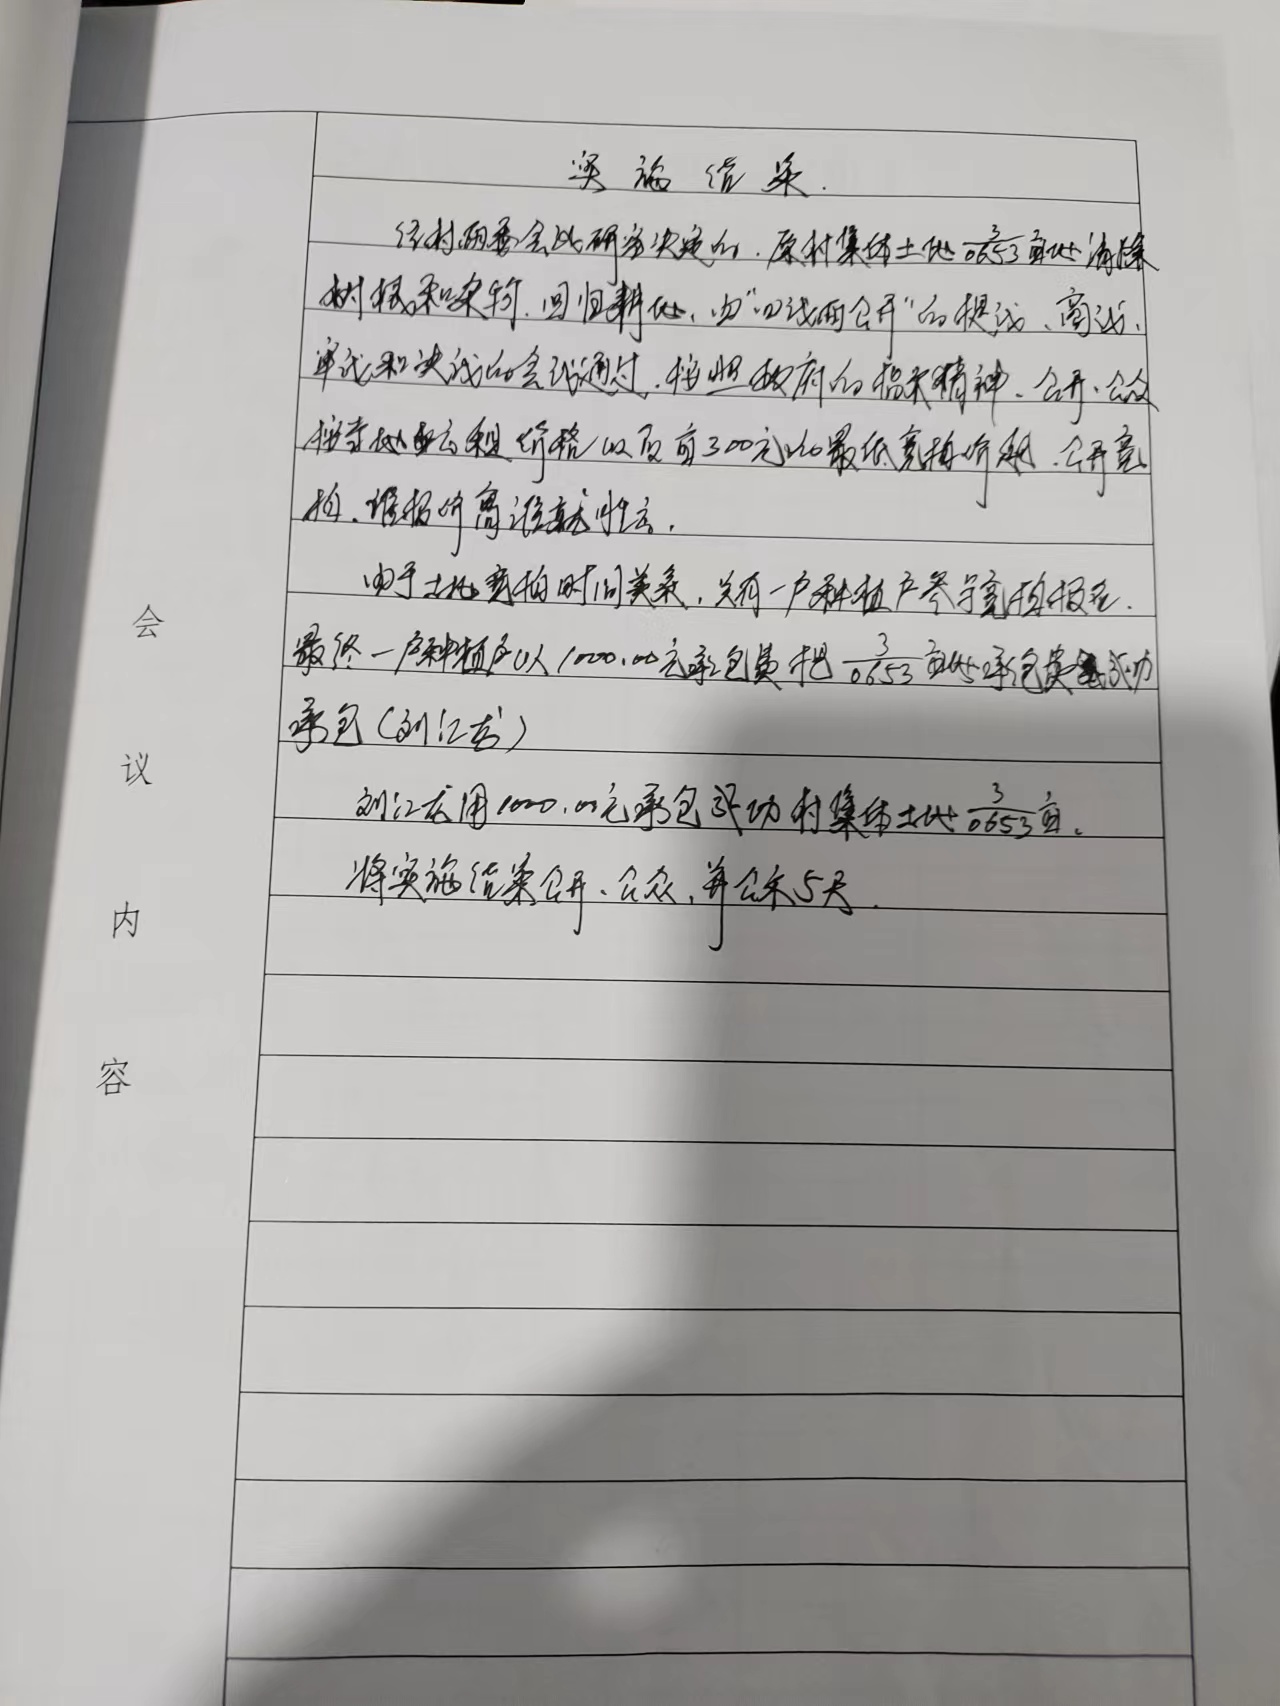 实施结果.
经村两委会议研究决定的.原村集体土地3/0653亩地清除
树根和杂物.回归耕地,由"四议两公开"的提议、商议、
审议和决议的会议通过.按照政府的指示精神、公开、公众
租价格以及亩300元的最低竞拍价.公开竞
拍.谁报价高谁就
由于土地竞拍时间,只有一户种植户参与竞拍报名.
最终一户种植户以1000.00元承包费把3/0653亩地承包费成功
承包(刘江龙)
刘江龙用1000.00元承包成功村集体土地3/0653亩.
将实施结果公开、公众,并公示5天.
会
议
内
容